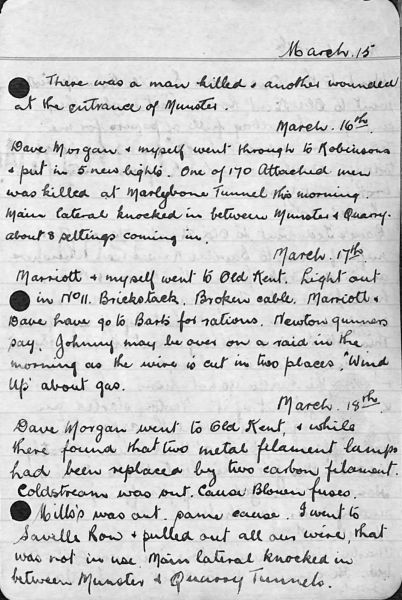 March. 15
There was a man killed & another wounded
at the entrance of Munster.
March. 16th.
Dave Morgan & myself went through to Robinsons
& put in 5 new lights. One of 170 Attached men
was killed at Marlybone Tunnel this morning.
Main lateral knocked in between Munster & Quarry.
about 8 settings coming in.
March. 17th.
Marriott & myself went to Old Kent. Light out
in No 11. Brickstack. Broken cable. Marriott &
Dave have go to Barts for rations. Newton gunners
say. Johnny may be over on a raid in the
morning as the wire is cut in two places, "Wind
Up" about gas.
March. 18th.
Dave Morgan went to Old Kent, & while
there found that two metal filament lamps
had been replaced by two carbon filament.
Coldstream was out. Cause Blown fuses.
Mills's was out. same cause. I went to
Saville Row & pulled out all our wire, that
was not in use. Main lateral knocked in
between Munster & Quarry Tunnels.